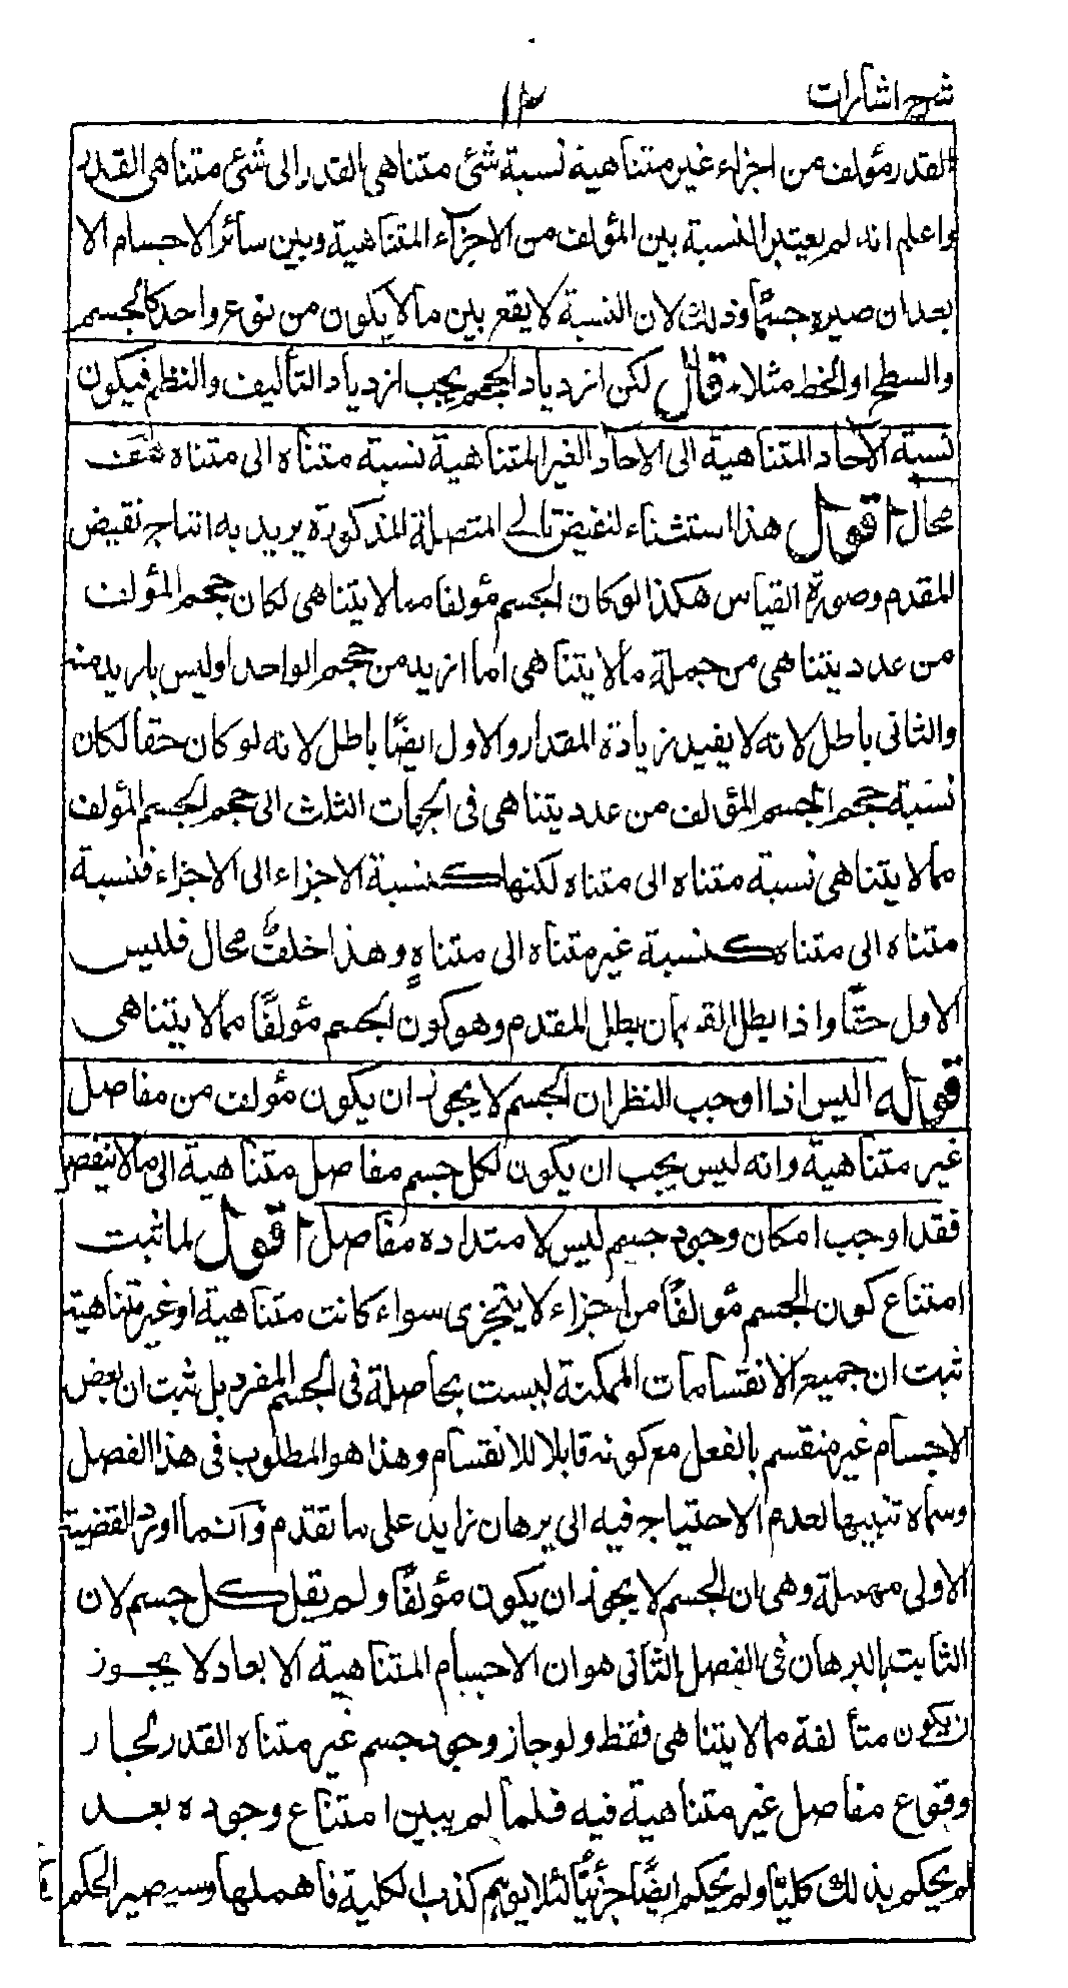 شرح اشارات
۱۳
القدر مؤلف من اجزاء غير متناهية نسبة شئ متناهى القدر الى شئ متناهى القدر
واعلم انه لم يعتبر النسبة بين المؤلف من الاجزاء المتناهية وبين سائر الاجسام الا
بعد ان صيره جسمًا وذلك لان النسبة لا يقع بين مالا يكون من نوع واحد كالجسم
والسطح او الخط مثلا قال لكن ازدياد الحجم يجب ازدياد التأليف والنظم فيكون
نسبة الآحاد المتناهية الى الآحاد الغير المتناهية نسبة متناه الى متناه
محال اقول هذا استثناء لنقيض تالى المتصلة المذكورة يريد به انتاج نقيض
المقدم وصورة القياس هكذا لو كان الجسم مؤلفا مما لا يتناهى لكان حجم المؤلف
من عدد يتناهى من جملة مالا يتناهى اما ازيد من حجم الواحد او ليس بازيد منه
والثانى باطل لانه لا يفيد زيادة المقدار والاول ايضًا باطل لانه لو كان حقا لكان
نسبة حجم الجسم المؤلف من عدد يتناهى فى الجهات الثلث الى حجم الجسم المؤلف
مما لا يتناهى نسبة متناه الى متناه لكنها كنسبة الاجزاء الى الاجزاء فنسبة
متناه الى متناه كنسبة غير متناه الى متناهٍ وهذا خلف محال فليس
الاول حقًا واذا بطل القسمان بطل المقدم وهو كون الجسم مؤلفًا مما لا يتناهى
قوله اليس اذا اوجب النظر ان الجسم لا يجوز ان يكون مؤلف من مفاصل
غير متناهية وانه ليس يجب ان يكون لكل جسم مفاصل متناهية الى مالا ينفصل
فقد اوجب امكان وجود جسم ليس لامتداده مفاصل اقول لما ثبت
امتناع كون الجسم مؤلفًا من اجزاء لا يتجزى سواء كانت متناهية او غير متناهية
ثبت ان جميع الانقسامات الممكنة ليست بحاصلة فى الجسم المفرد بل ثبت ان بعض
الاجسام غير منقسم بالفعل مع كونه قابلا للانقسام وهذا هو المطلوب فى هذا الفصل
وسماه تنبيها لعدم الاحتياج فيه الى برهان زايد على ما تقدم وآنما اورد القضية
الاولى مهملة وهى ان الجسم لا يجوز ان يكون مؤلفًا ولم يقل كل جسم لان
الثابت بالبرهان فى الفصل الثانى هو ان الاجسام المتناهية الابعاد لا يجوز
ان يكون متألفة مما لا يتناهى فقط ولو جاز وجود جسم غير متناه القدر لجاز
وقوع مفاصل غير متناهية فيه فلما لم يبين امتناع وجوده بعد
لم يحكم بذلك كليًا ولم يحكم ايضًا جزئيًا لئلا يوهم كذب الكلية فاهملها وسيصير الحكم